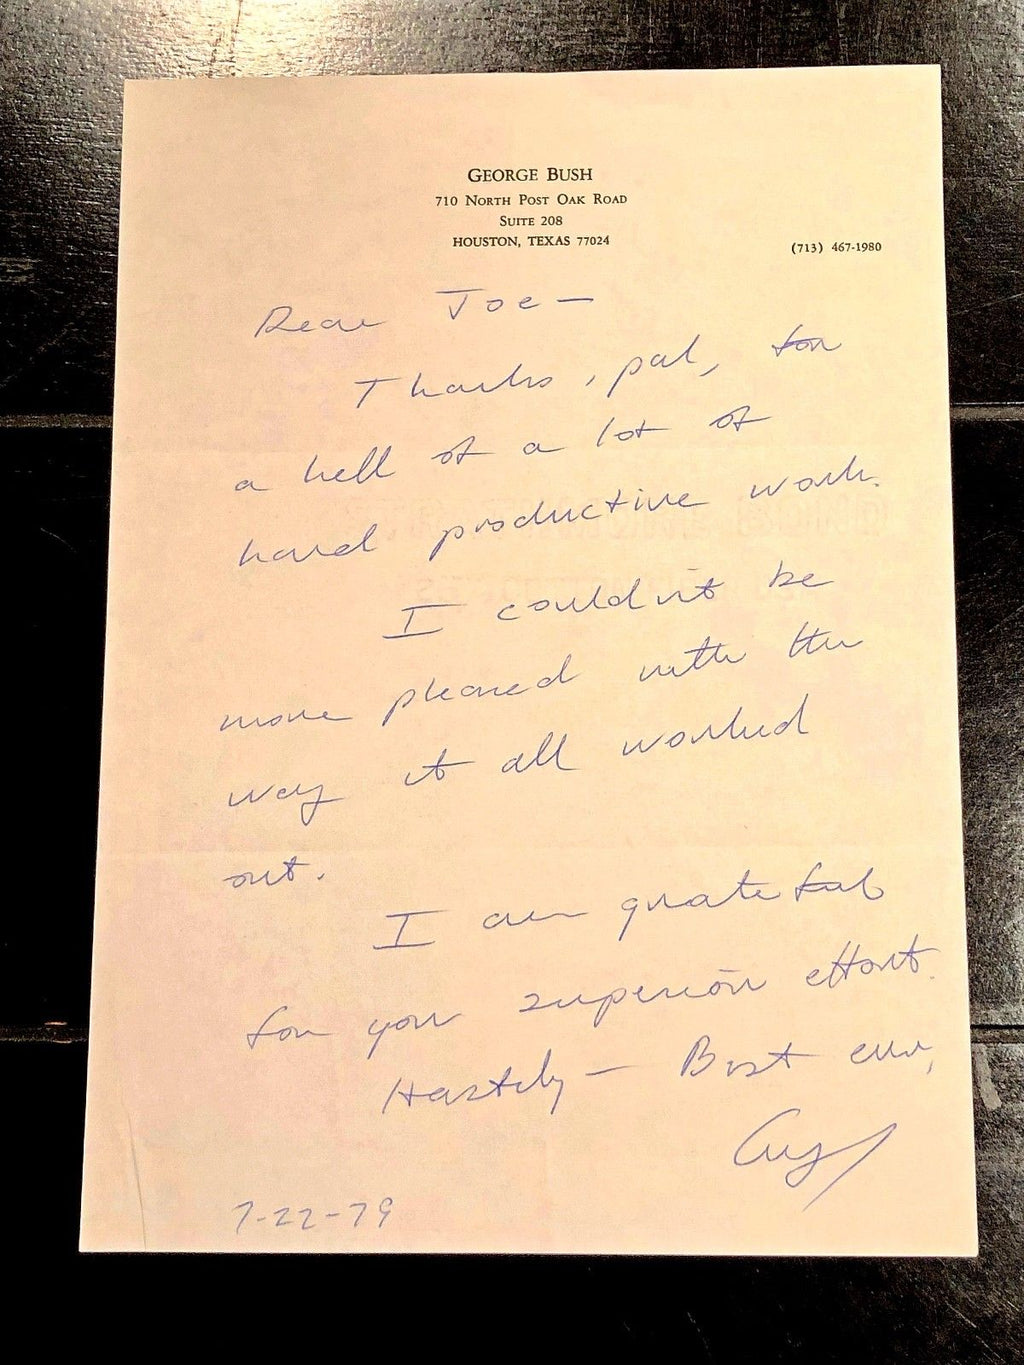 GEORGE BUSH
710 NORTH POST OAK ROAD
SUITE 208
HOUSTON, TEXAS 77024
(713) 467-1980
Dear Joe —
Thanks, pal, for
a hell of a lot of
hard productive work.
I couldn't be
more pleased with the
way it all worked
out.
I am grateful
for your superior effort.
Hastily — Best ever,
7-22-79